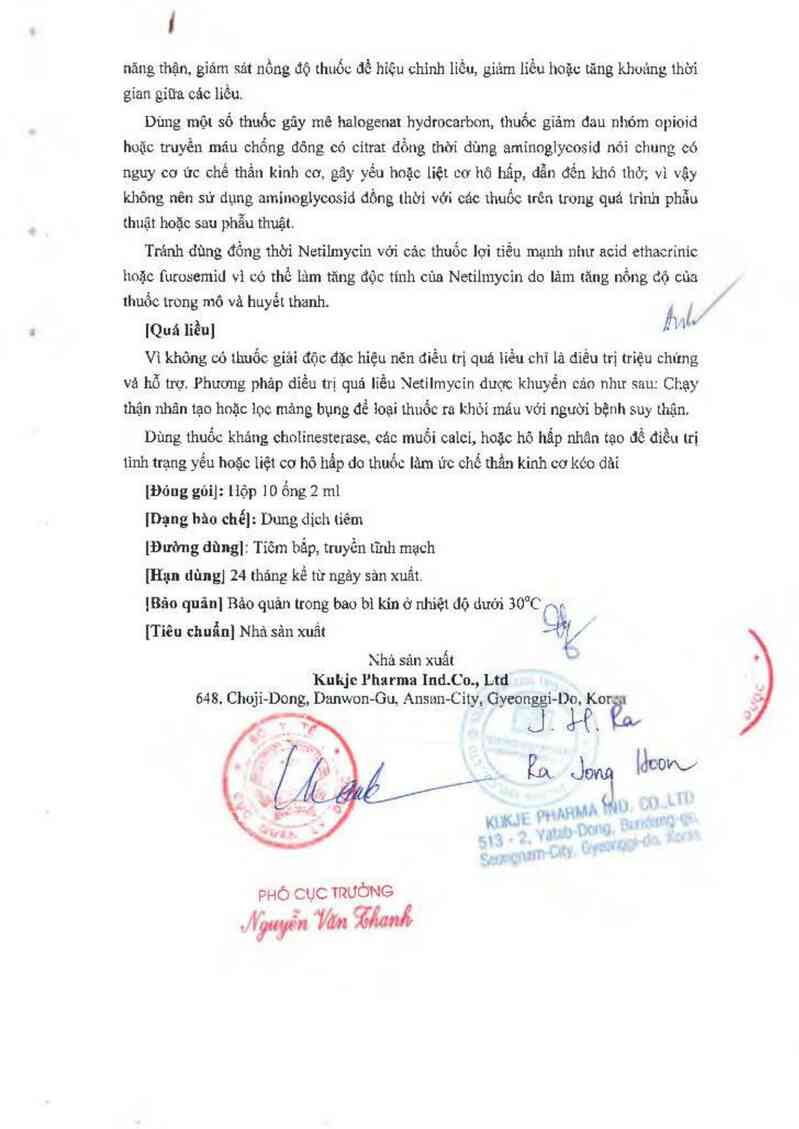 năng thận, giám sát nồng độ thuốc để hiệu chỉnh liều, giảm liều hoặc tăng khoảng thời
gian giữa các liều.
Dùng một số thuốc gây mê halogenat hydrocarbon, thuốc giảm đau nhóm opioid
hoặc truyền máu chống đông có citrat đồng thời dùng aminoglycosid nói chung có
nguy cơ ức chế thần kinh cơ, gây yếu hoặc liệt cơ hô hấp, dẫn đến khó thở; vì vậy
không nên sử dụng aminoglycosid đồng thời với các thuốc trên trong quá trình phẫu
thuật hoặc sau phẫu thuật.
Tránh dùng đồng thời Netilmycin với các thuốc lợi tiểu mạnh như acid ethacrinic
hoặc furosemid vì có thể làm tăng độc tính của Netilmycin do làm tăng nồng độ của
thuốc trong mô và huyết thanh.
[Quá liều]
Vì không có thuốc giải độc đặc hiệu nên điều trị quá liều chỉ là điều trị triệu chứng
và hỗ trợ. Phương pháp điều trị quá liều Netilmycin được khuyến cáo như sau: Chạy
thận nhân tạo hoặc lọc màng bụng để loại thuốc ra khỏi máu với người bệnh suy thận.
Dùng thuốc kháng cholinesterase, các muối calci, hoặc hô hấp nhân tạo để điều trị
tình trạng yếu hoặc liệt cơ hô hấp do thuốc làm ức chế thần kinh cơ kéo dài
[Đóng gói]: Hộp 10 ống 2 ml
[Dạng bào chế]: Dung dịch tiêm
[Đường dùng]: Tiêm bắp, truyền tĩnh mạch
[Hạn dùng] 24 tháng kể từ ngày sản xuất.
[Bảo quản] Bảo quản trong bao bì kín ở nhiệt độ dưới 30°C
[Tiêu chuẩn] Nhà sản xuất
Nhà sản xuất
Kukje Pharma Ind.Co., Ltd
648, Choji-Dong, Danwon-Gu, Ansan-City, Gyeonggi-Do, Korea
J. H. Ra
Ra Jong Hoon
BỘ Y TẾ
CỤC QUẢN LÝ
DƯỢC
KUKJE PHARMA IND. CO., LTD
513 - 2, Yatab-Dong, Bundang-gu,
Seongnam-City, Gyeonggi-do, Korea
PHÓ CỤC TRƯỞNG
Nguyễn Văn Thanh